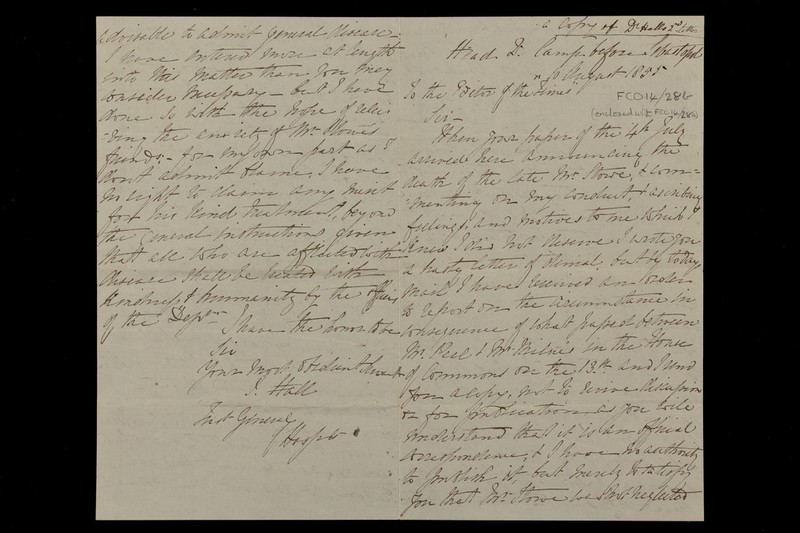 a Copy of Dr Hall's 2d letter
Head Qr Camp before Sebastopol
10 August 1855
FCO14/286
(enclosed with FCO14/284)
To the Editor of the Times
Sir
When your paper of the 4th July
arrived here announcing the
death of the late Mr Stowe, & com=
=menting on my conduct, & ascribing
feelings, and motives to me which I
knew I did not deserve I wrote you
a hasty letter of denial but by today's
Mail I have received an order
to report on the circumstance in
consequence of what passed between
Mr Peel & Mr Milnes in the House
of Commons on the 13th and I send
you a copy, not to revive discussion
or for publication as you will
understand that it is an official
correspondence, & I have no authority
to publish it, but merely to satisfy
you that Mr Stowe was not neglected
advisable to admit general disease.
I have entered more at length
into this matter than you may
consider necessary - but I have
done so with the hope of reliev
-ing the anxiety of Mr Stowe's
friends - for my own part as I
don't admit blame, I have
no right to claim any merit
for his kind treatment, beyond
the general instructions given
that all who are afflicted with
disease shall be treated with
kindness, & humanity by the officers
of the Deptmt
I have the honor to be
Sir
Your most obedient Servt
J. Hall
Inst General
Hosptls